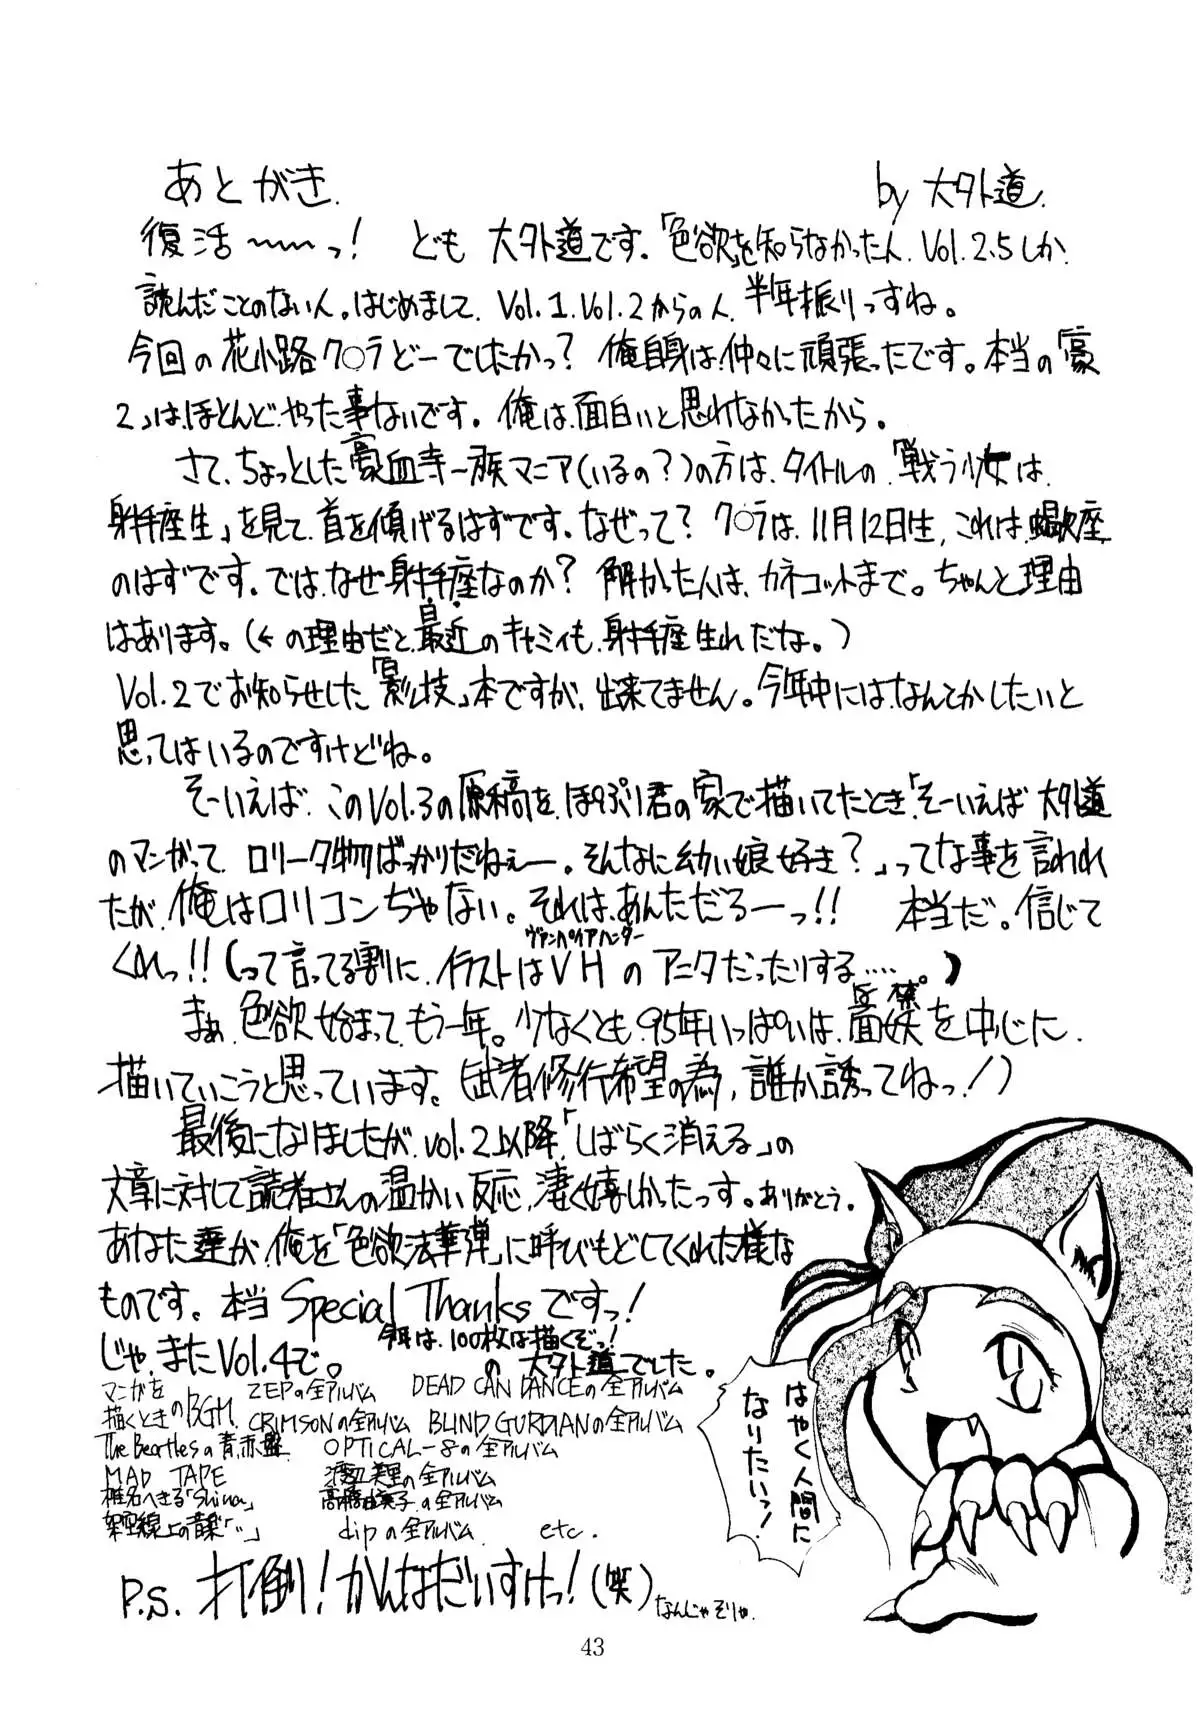 あとがき. by 大外道.
復活〜〜〜っ! ども 大外道です。「色欲」を知らなかった人、Vol.2.5しか
読んだことのない人。はじめまして、Vol.1、Vol.2からの人、半年振りっすね。
今回の花小路ク○ラどーでしたかっ? 俺自身は仲々に頑張ったです。本当の「豪
2」はほとんどやった事ないです。俺は面白いと思れなかったから。
さて、ちょっとした豪血寺一族マニア(いるの?)の方は、タイトルの「戦う少女は
射手座生」を見て、首を傾げるはずです。なぜって? ク○ラは、11月12日生、これは、蝎座
のはずです。では、なぜ射手座なのか? 解かった人は、カネコットまで。ちゃんと理由
はあります。(←の理由だと、最近の白キャミィも、射手座生れだな。)
Vol.2でお知らせした「影技」本ですが、出来てません。今年中にはなんとかしたいと
思ってはいるのですけどね。
そーいえば、このVol.3の原稿を、ぽぷり君の家で描いてたとき「そーいえば大外道
のマンガって ロリータ物ばっかりだねぇー。そんなに幼い娘好き?」ってな事を言われ
たが、俺はロリコンぢゃない。それは、あんただろーっ!! 本当だ。信じて
くれっ!!(って言ってる割に、イラストはVHのアニタだったりする.....。)
ヴァンパイアハンター
まぁ、色欲始まって、もう一年。少なくとも、95年いっぱいは、を中心に
描いていこうと思っています。(武者修行希望の為、誰か誘ってねっ!)
最後になりましたが、vol.2以降、「しばらく消える」の
文章に対して読者さんの温かい反応、凄く嬉しかたっす。ありがとう。
あなた達が、俺を「色欲法華弾」に呼びもどしてくれた様な
ものです。本当 Special Thanksですっ!
じゃ、またVol.4で。 今年は、100枚は描くぞっ!の 大外道でした。
マンガを描くときのBGM. ZEPの全アルバム DEAD CAN DANCEの全アルバム
CRIMSONの全アルバム BLIND GURDIANの全アルバム
The Beartlesの青,赤盤 OPTICAL-8の全アルバム
MAD TAPE 渡辺美里の全アルバム
椎名へきる「Shiena」 の全アルバム
架空線上の音楽 dipの全アルバム etc.
P.S. 打倒!かんなだいすけっ!(笑) なんじゃそりゃ.
はやく人間に
なりたいっ!
43